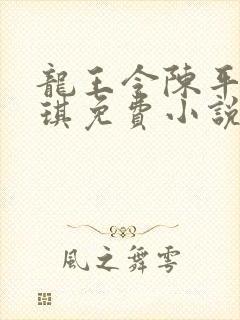 龍王令陳平
琪免費小說
風之舞雩